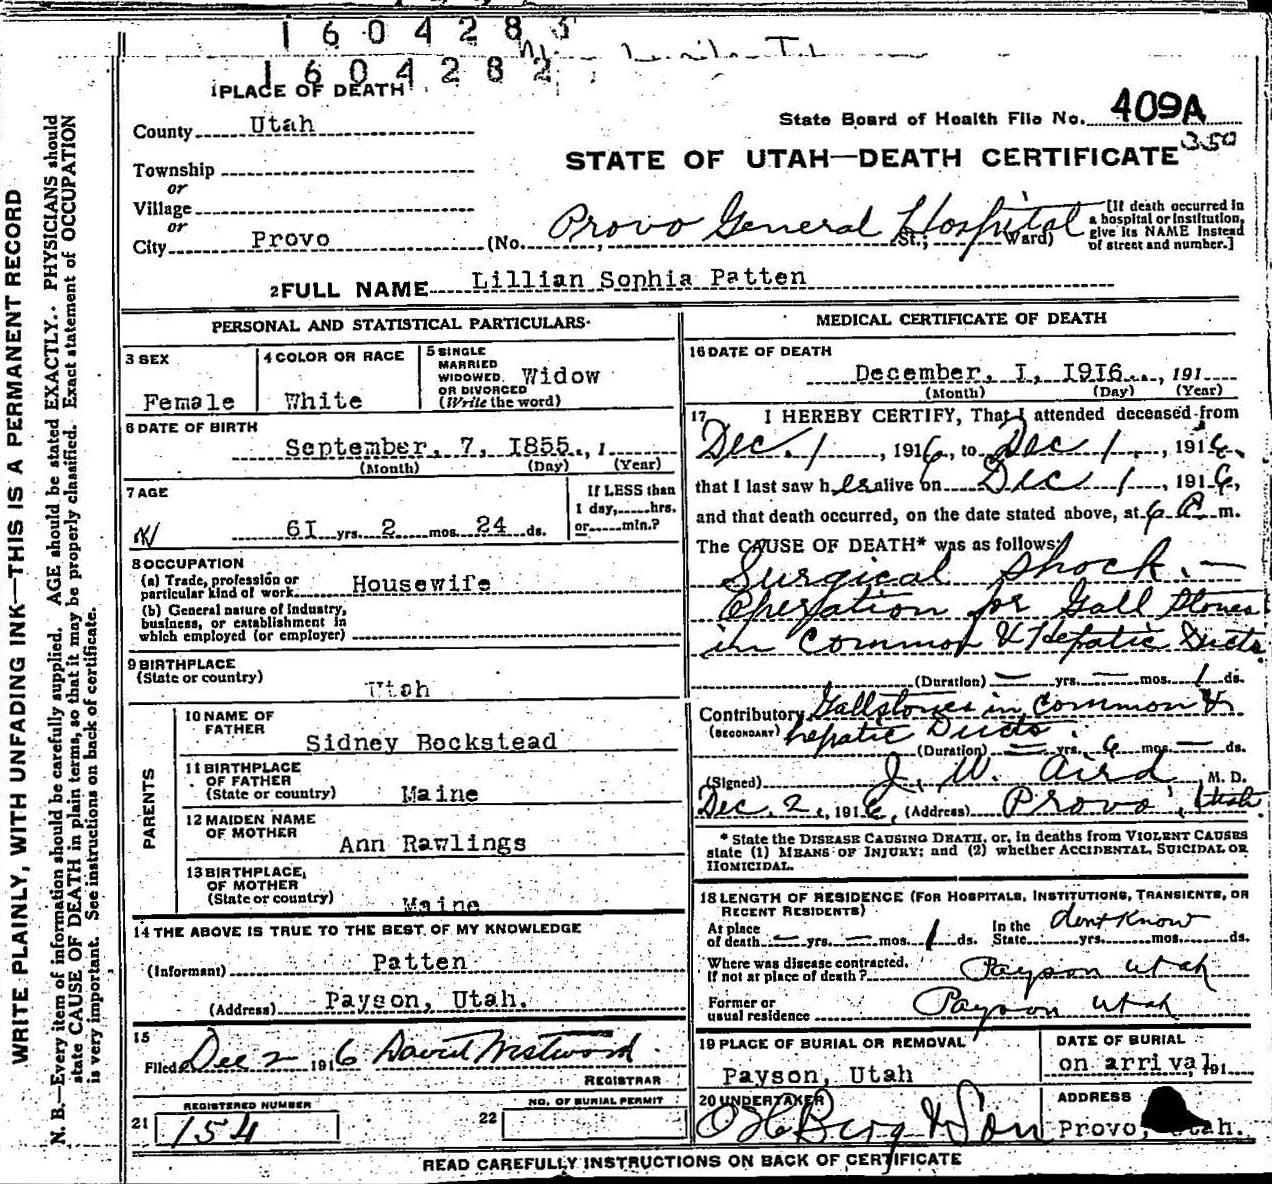 1604283
1604282
1 PLACE OF DEATH
State Board of Health File No. 409A
County Utah
350
STATE OF UTAH—DEATH CERTIFICATE
Township
or
Village
or
City Provo (No. Provo General Hospital St.; Ward)
[If death occurred in a hospital or institution, give its NAME instead of street and number.]
2 FULL NAME Lillian Sophia Patten
PERSONAL AND STATISTICAL PARTICULARS
3 SEX Female
4 COLOR OR RACE White
5 SINGLE MARRIED WIDOWED OR DIVORCED (Write the word) Widow
6 DATE OF BIRTH
September, 7, 1855., 1
(Month) (Day) (Year)
7 AGE
61 yrs. 2 mos. 24 ds.
If LESS than 1 day, hrs. or min.?
8 OCCUPATION
(a) Trade, profession or particular kind of work Housewife
(b) General nature of industry, business, or establishment in which employed (or employer)
9 BIRTHPLACE
(State or country)
Utah
PARENTS
10 NAME OF FATHER
Sidney Rockstead
11 BIRTHPLACE OF FATHER (State or country) Maine
12 MAIDEN NAME OF MOTHER
Ann Rawlings
13 BIRTHPLACE OF MOTHER (State or country) Maine
14 THE ABOVE IS TRUE TO THE BEST OF MY KNOWLEDGE
(Informant) Patten
(Address) Payson, Utah.
15
Filed Dec 2 1916 David Westwood
REGISTRAR
REGISTERED NUMBER
21 154
NO. OF BURIAL PERMIT
22
MEDICAL CERTIFICATE OF DEATH
16 DATE OF DEATH
December, 1, 1916., 191
(Month) (Day) (Year)
17 I HEREBY CERTIFY, That I attended deceased from
Dec. 1, 1916, to Dec 1, 1916,
that I last saw her alive on Dec 1, 1916,
and that death occurred, on the date stated above, at 6 P. m.
The CAUSE OF DEATH* was as follows:
Surgical shock. —
Operation for Gall Stones
in Common & Hepatic Ducts.
(Duration) — yrs. — mos. 1 ds.
Contributory Gallstones in Common &
(SECONDARY) hepatic Ducts.
(Duration) — yrs. 6 mos. — ds.
(Signed) J. W. Aird, M. D.
Dec. 2, 1916, (Address) Provo, Utah
* State the DISEASE CAUSING DEATH, or, in deaths from VIOLENT CAUSES
state (1) MEANS OF INJURY; and (2) whether ACCIDENTAL, SUICIDAL OR
HOMICIDAL.
18 LENGTH OF RESIDENCE (FOR HOSPITALS, INSTITUTIONS, TRANSIENTS, OR
RECENT RESIDENTS)
At place of death — yrs. — mos. 1 ds. In the State dont know yrs. mos. ds.
Where was disease contracted, If not at place of death? Payson Utah
Former or usual residence Payson Utah
19 PLACE OF BURIAL OR REMOVAL
Payson, Utah
DATE OF BURIAL
on arrival, 191
20 UNDERTAKER
O H Berg & Son
ADDRESS
Provo, Utah.
READ CAREFULLY INSTRUCTIONS ON BACK OF CERTIFICATE
WRITE PLAINLY, WITH UNFADING INK—THIS IS A PERMANENT RECORD
N. B.—Every item of information should be carefully supplied. AGE should be stated EXACTLY. PHYSICIANS should
state CAUSE OF DEATH in plain terms, so that it may be properly classified. Exact statement of OCCUPATION
is very important. See instructions on back of certificate.